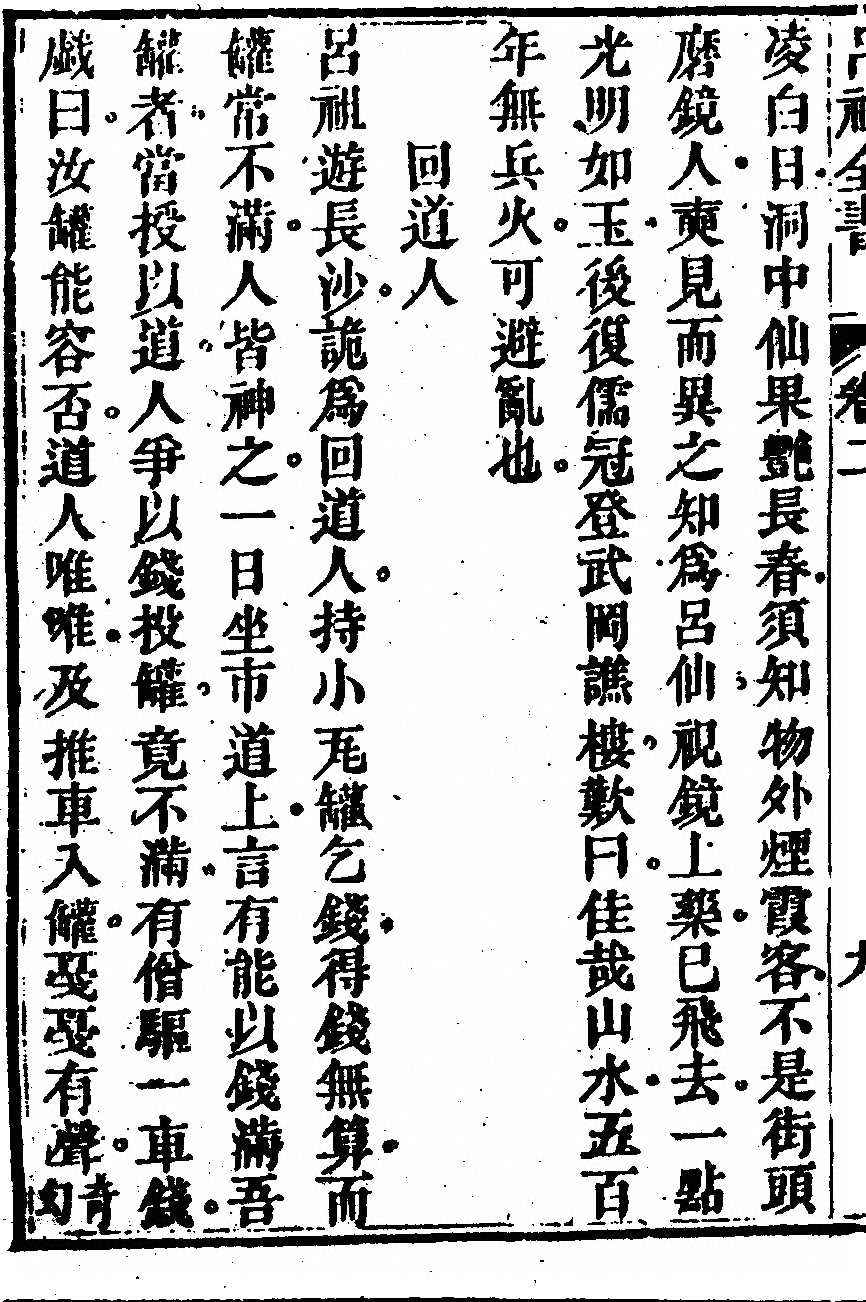 呂祖全書 卷二 九
凌白日洞中仙果艷長春須知物外煙霞客不是街頭
磨鏡人奭見而異之知爲呂仙視鏡上藥已飛去一點
光明如玉後復儒冠登武岡譙樓歎曰佳哉山水五百
年無兵火可避亂也
回道人
呂祖遊長沙詭爲回道人持小瓦罐乞錢得錢無算而
罐常不滿人皆神之一日坐市道上言有能以錢滿吾
罐者當授以道人爭以錢投罐竟不滿有僧驅一車錢
戱曰汝罐能容否道人唯唯及推車入罐戞戞有聲奇幻